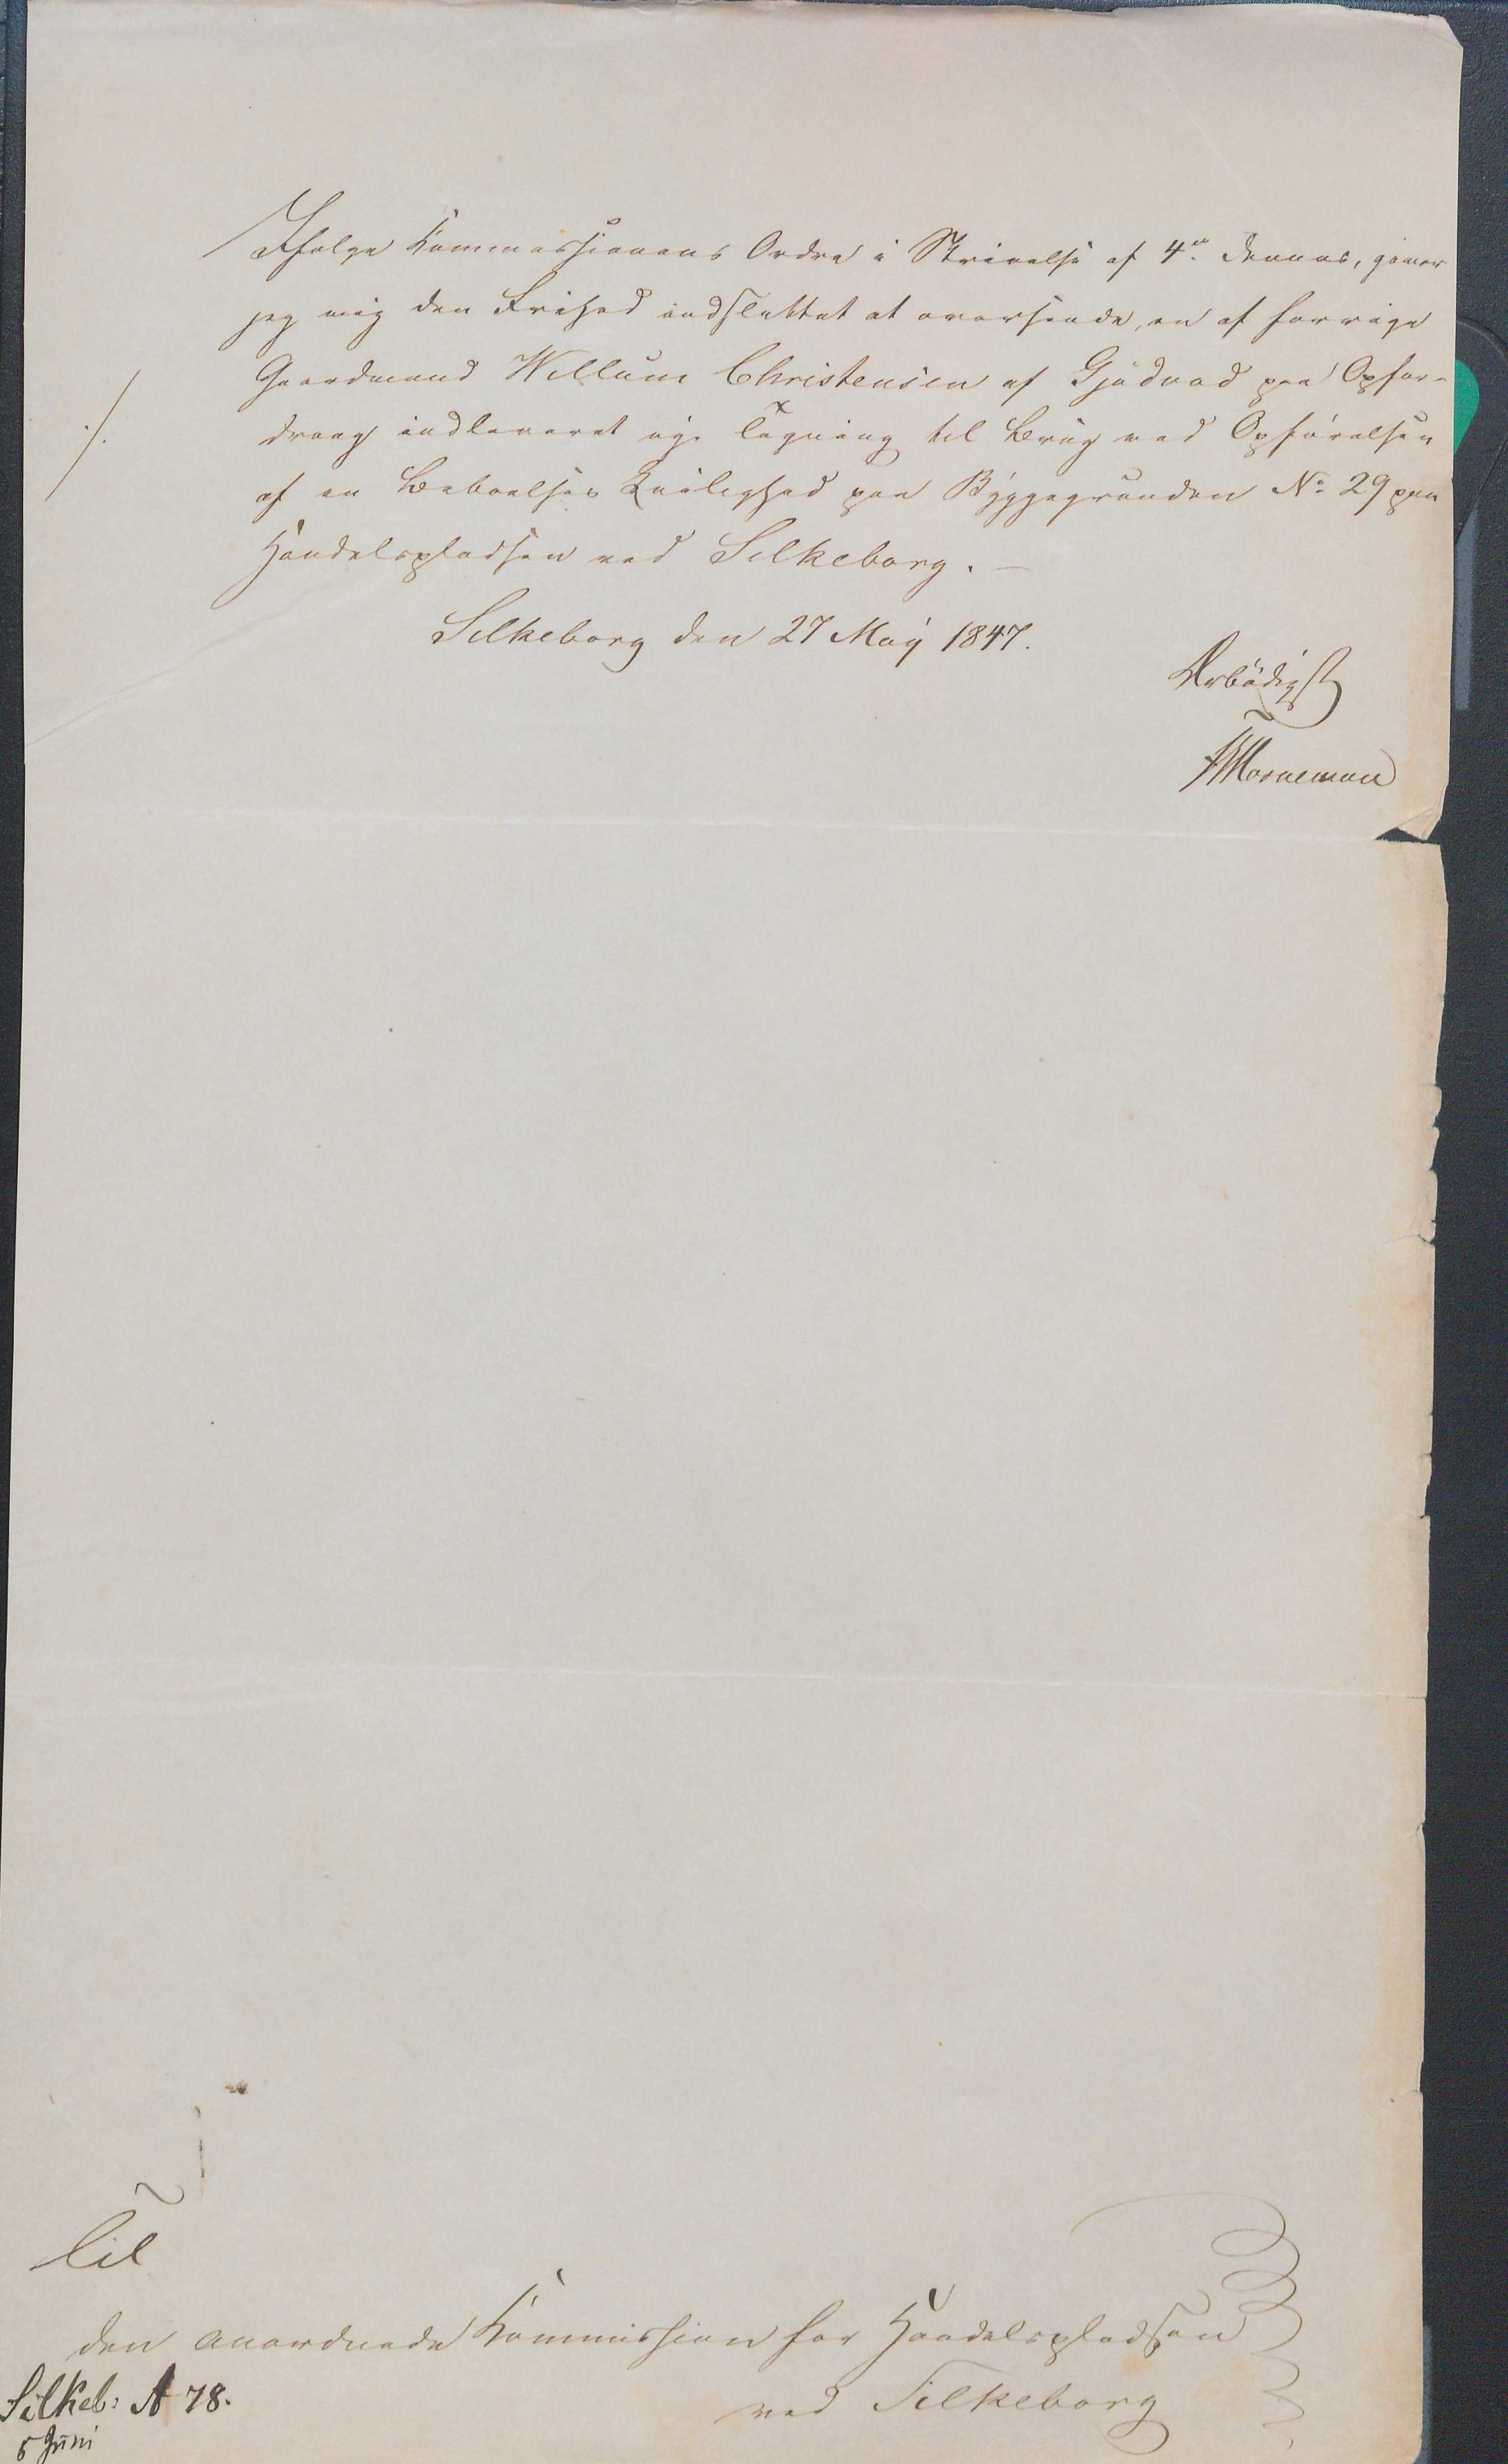 Ifölge Kommissionens Ordre i Skrivelse af 4de dennes, giver
jeg mig den Frihed indsluttet at oversende, en af forrige
Gaardmand Willum Christensen af Gjödvad paa Opfor-
./.
drang indleveret nye Tegning til Brug ved Opförelsen
af en Beboelses Leilighed paa Byggegrunden No 29 paa
Handelspladsen ved Silkeborg. —
Silkeborg den 27 May 1847.
Ærbödigst
Til
den anordnede Kommission for Handelspladsen
ved Silkeborg
Silkeb: A 78.
5 Juni